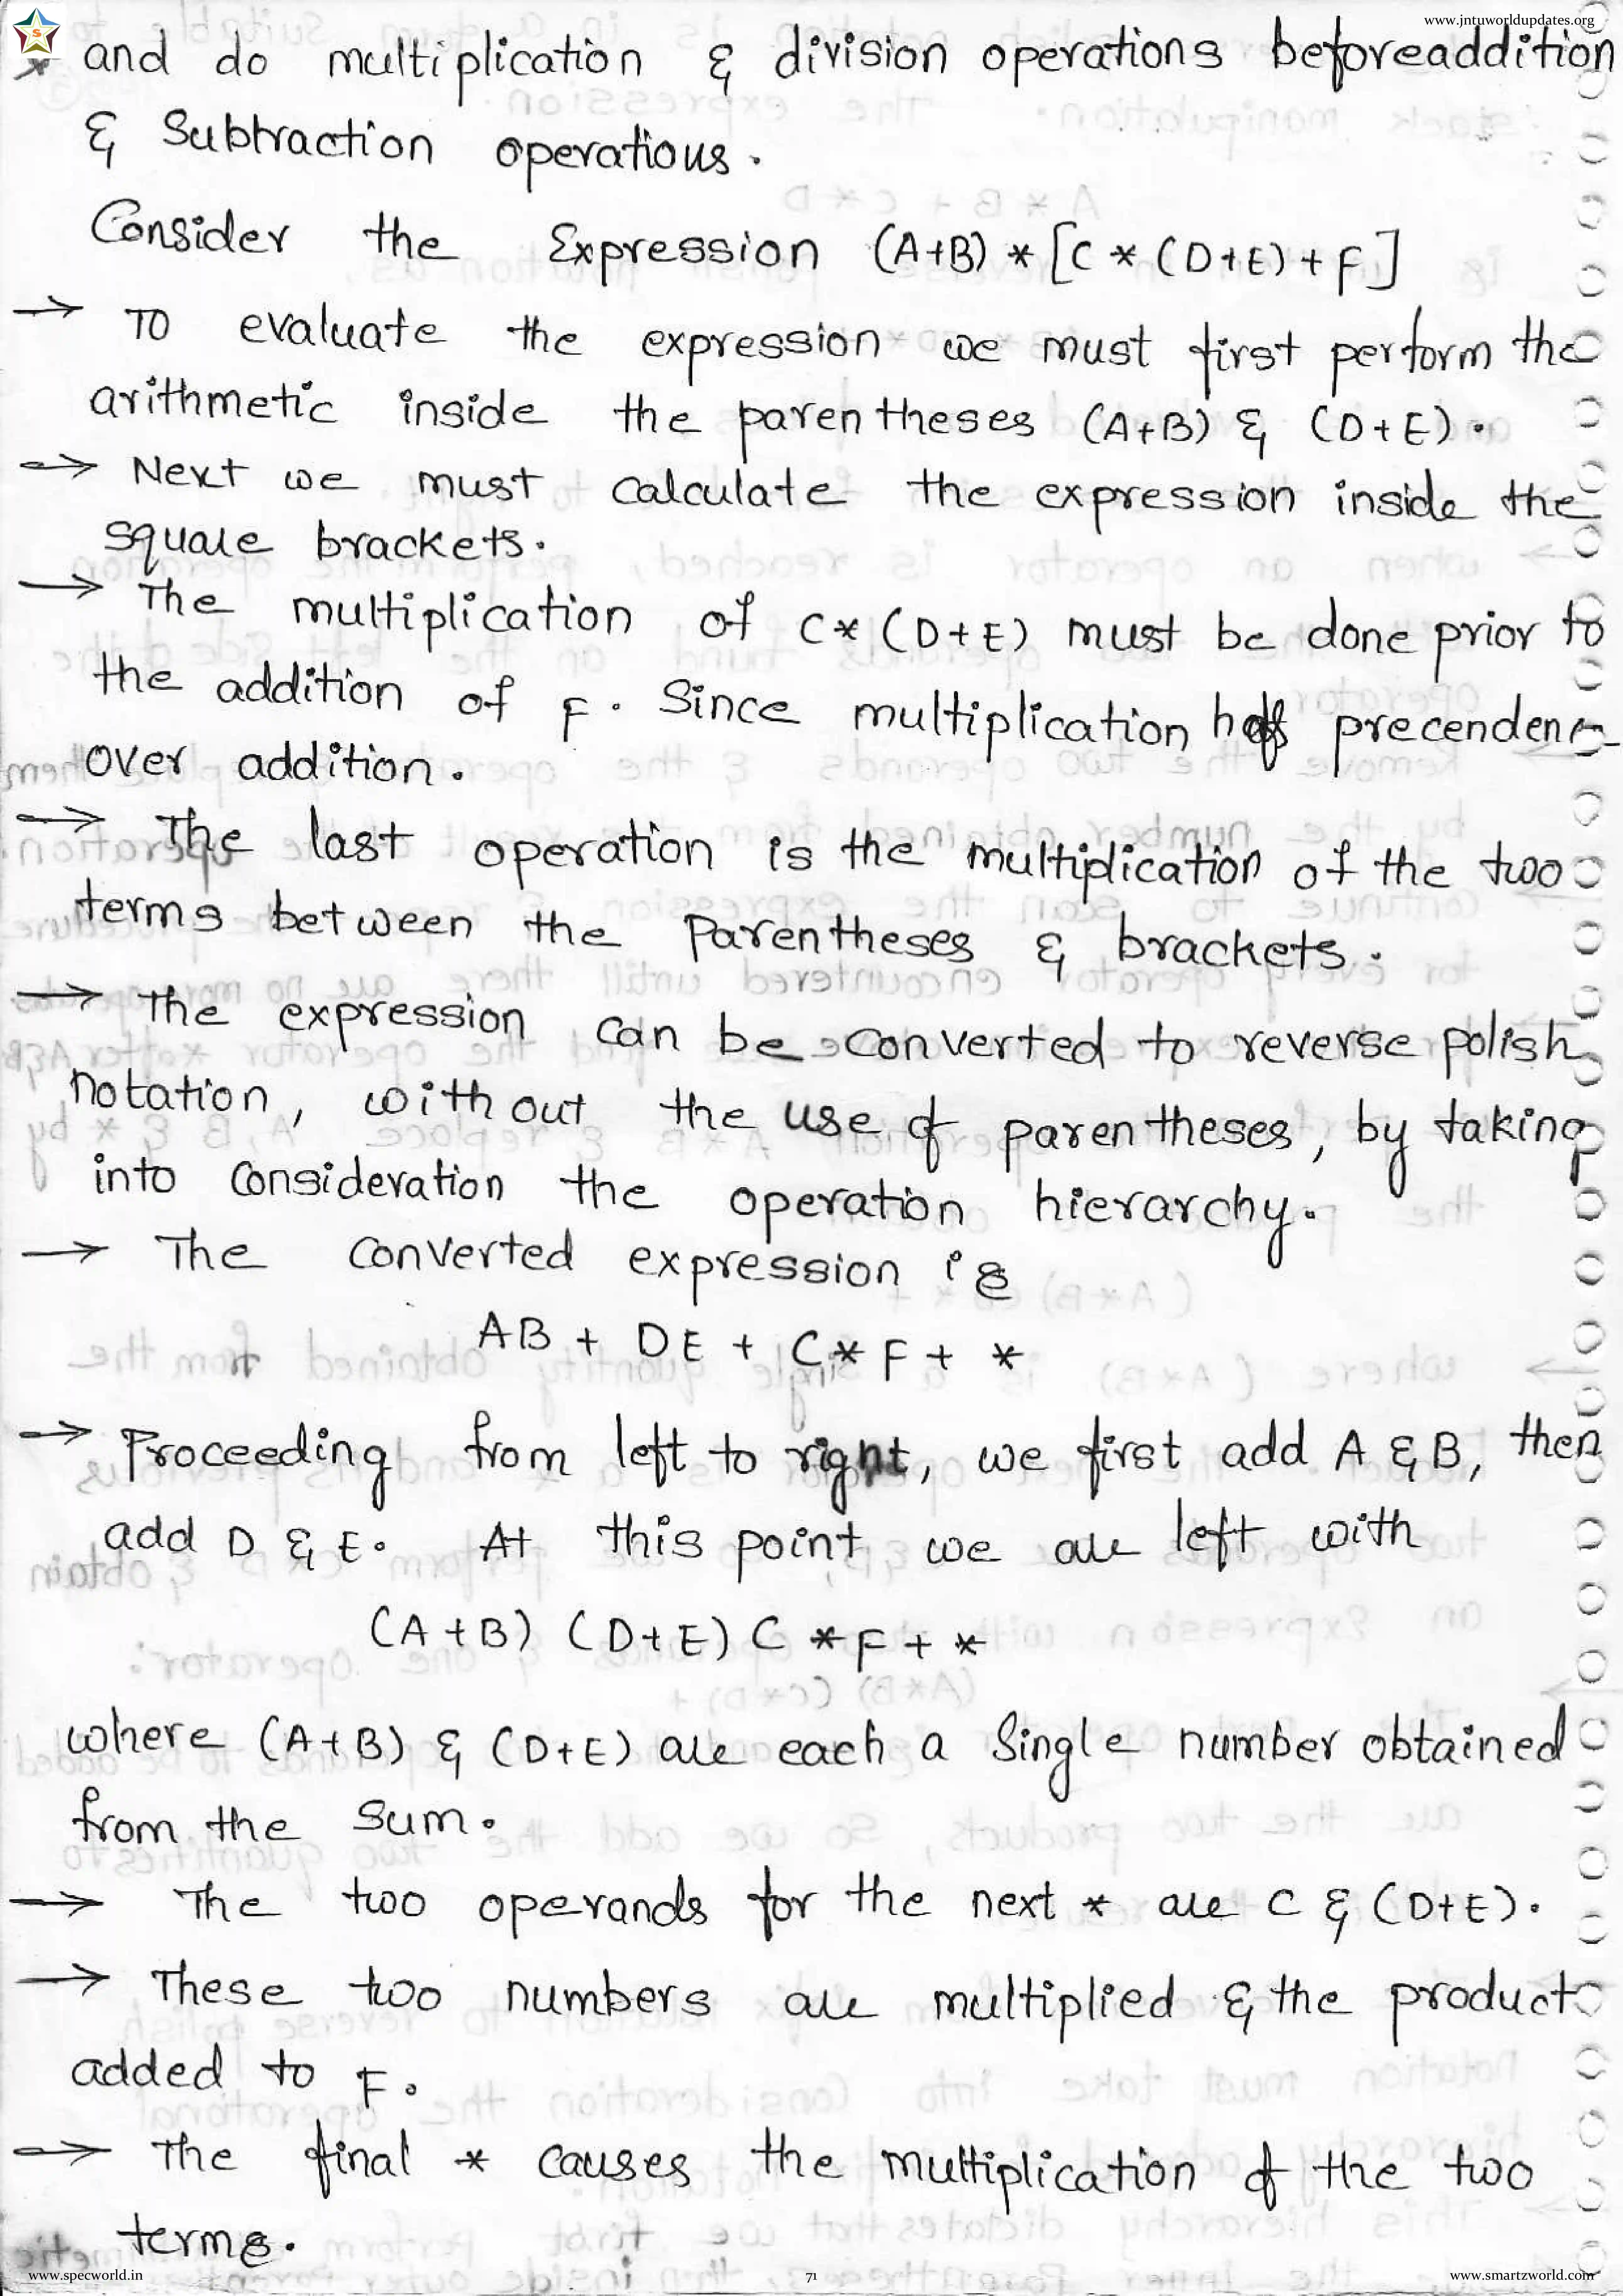 www.jntuworldupdates.org
and do multiplication & division operations beforeaddition
& Subtraction operatious.
Consider the Expression (A+B) * [C * (D+E) + F]
→ TO evaluate the expression we must first perform the
arithmetic inside the parentheses (A+B) & (D+E).
→ Next we must calculate the expression inside the
square brackets.
→ The multiplication of C* (D+E) must be done prior to
the addition of F. Since multiplication has precendence
over addition.
→ The last operation is the multiplication of the two
terms between the Parentheses & brackets.
→ The expression can be converted to reverse polish
notation, without the use of parentheses, by taking
into consideration the operation hierarchy.
→ The converted expression is
AB + DE + C* F + *
→ Proceeding from left to right, we first add A & B, then
add D & E. At this point we are left with
(A+B) (D+E) C * F + *
where (A+B) & (D+E) are each a Single number obtained
from the sum.
→ The two operands for the next * are C & (D+E).
→ These two numbers are multiplied & the product
added to F.
→ The final * causes the multiplication of the two
terms.
www.specworld.in 71 www.smartzworld.com